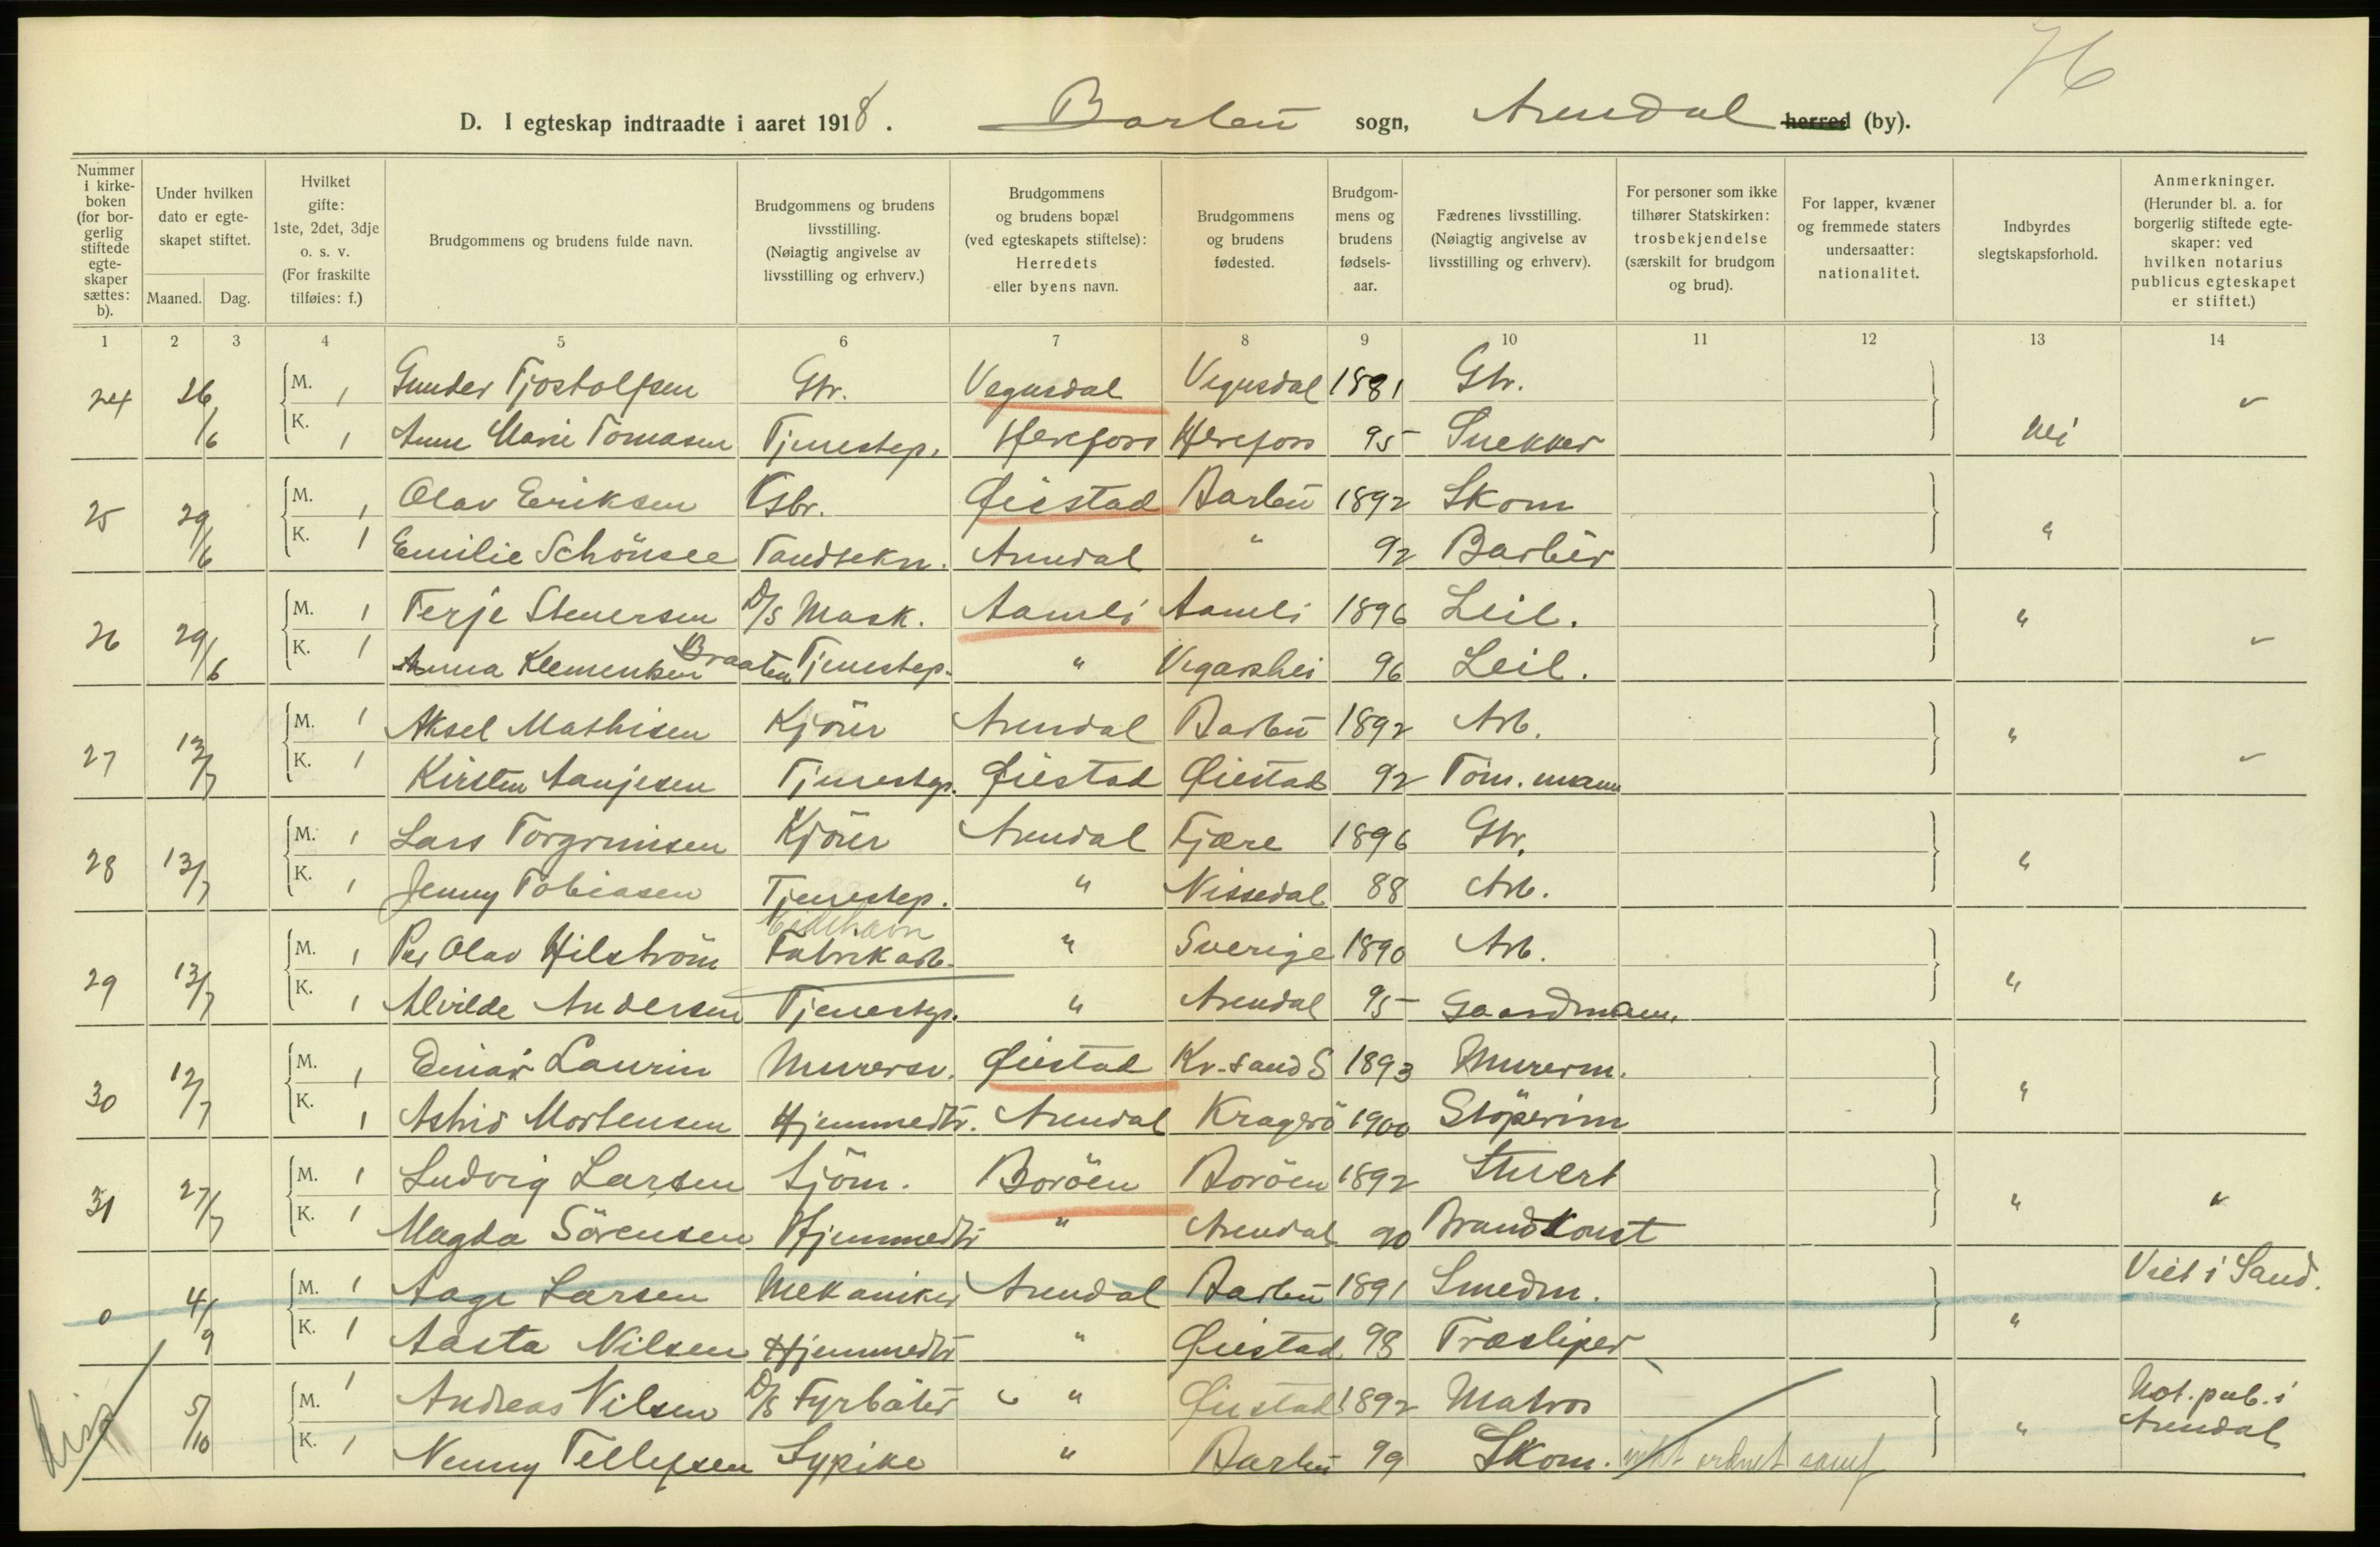 76
D. I egteskap indtraadte i aaret 1918. Barbu sogn, Arendal herred (by).
Nummer i kirke-boken (for bor-gerlig stiftede egte-skaper sættes: b).
Under hvilken dato er egte-skapet stiftet.
Maaned. Dag.
Hvilket gifte: 1ste, 2det, 3dje o. s. v. (For fraskilte tilføies: f.)
Brudgommens og brudens fulde navn.
Brudgommens og brudens livsstilling. (Nøiagtig angivelse av livsstilling og erhverv.)
Brudgommens og brudens bopæl (ved egteskapets stiftelse): Herredets eller byens navn.
Brudgommens og brudens fødested.
Brudgom-mens og brudens fødsels-aar.
Fædrenes livsstilling. (Nøiagtig angivelse av livsstilling og erhverv).
For personer som ikke tilhører Statskirken: trosbekjendelse (særskilt for brudgom og brud).
For lapper, kvæner og fremmede staters undersaatter: nationalitet.
Indbyrdes slegtskapsforhold.
Anmerkninger. (Herunder bl. a. for borgerlig stiftede egte-skaper: ved hvilken notarius publicus egteskapet er stiftet.)
1 2 3 4 5 6 7 8 9 10 11 12 13 14
24 26/6 M. 1 Gunder Tjostolfsen Gbr. Vegusdal Vegusdal 1881 Gbr.
K. 1 Anne Marie Tomasen Tjenestep. Herefoss Herefoss 95 Snekker nei
25 29/6 M. 1 Olav Eriksen Gbr. Øiestad Barbu 1892 Skom
K. 1 Emilie Schönsee Tandtekn. Arendal " 92 Barber "
26 29/6 M. 1 Terje Stenersen D/S Mask. Aamli Aamli 1896 Leil. "
K. 1 Anna Klementsen Braaten Tjenestep. " Vegarshei 96 Leil.
27 13/7 M. 1 Aksel Mathisen Kjörer Arendal Barbu 1892 Arb. "
K. 1 Kirsten Aanjesen Tjenestep. Øiestad Øiestad 92 Töm.mann
28 13/7 M. 1 Lars Torgrimsen Kjörer Arendal Fjære 1896 Gbr. "
K. 1 Jenny Tobiasen Tjenestep. " Nissedal 88 Arb.
Eidehavn
29 13/7 M. 1 Per Olav Hilström Fabrikarb. " Sverige 1890 Arb.
K. 1 Alvilde Andersen Tjenestep. " Arendal 95 Gaardmann. "
30 12/7 M. 1 Einar Laurin Murersv. Øiestad Kr.sand S 1893 Murerm.
K. 1 Astrid Mortensen Hjemmedtr. Arendal Kragerö 1900 Stöperim "
31 27/7 M. 1 Ludvig Larsen Sjöm. Boröen Boröen 1892 Stuert
K. 1 Magda Sörensen Hjemmedtr " Arendal 90 Brandkonst "
0 4/9 M. 1 Aage Larsen Mekaniker Arendal Barbu 1891 Smedm. Viet i Sand.
K. 1 Aasta Nilsen Hjemmedtr " Øiestad 98 Træsliper "
5/10 M. 1 Andreas Nilsen D/S Fyrbøter " Øiestad 1892 Matros Not. pub. i Arendal
K. 1 Nenny Tellefsen Sypike " Barbu 99 Skom. ikke ordnet samf "